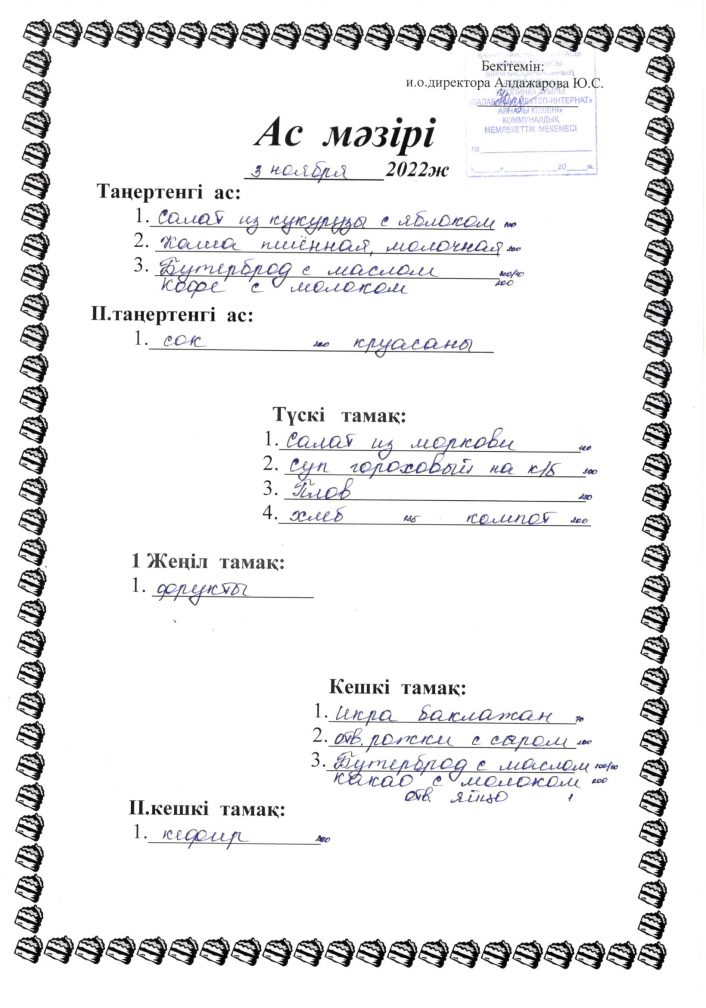 Бекітемін:
и.о.директора Алдажарова Ю.С.
МЕКТЕП-ИНТЕРНАТ»
КОММУНАЛДЫҚ
МЕМЛЕКЕТТІК МЕКЕМЕСІ
№
20 ж.
Ас мәзірі
3 ноября 2022ж
Таңертенгі ас:
1. Салат из кукурузы с яблоком 100
2. Каша пшённая, молочная 200
3. Бутерброд с маслом 100/10
кофе с молоком 200
II.таңертенгі ас:
1. сок 200 круасаны
Түскі тамақ:
1. Салат из моркови
2. Суп гороховый на к/б
3. Плов
4. хлеб компот 200
1 Жеңіл тамақ:
1. фрукты
Кешкі тамақ:
1. Икра баклажан 70
2. отв. рожки с сыром
3. Бутерброд с маслом 100/10
какао с молоком 200
отв яйцо 1
II.кешкі тамақ:
1. кефир 200